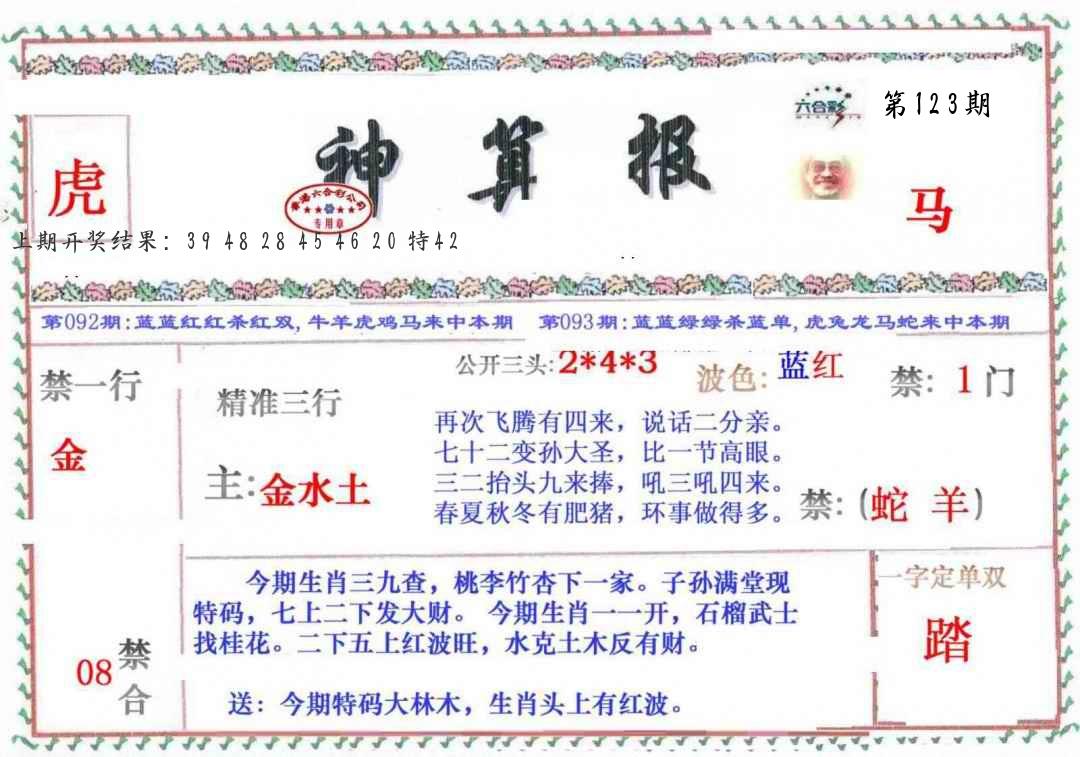 六合彩
第123期
神算报
虎
香港六合彩公司
专用章
马
上期开奖结果: 39 48 28 45 46 20 特42
第092期:蓝蓝红红杀红双,牛羊虎鸡马来中本期 第093期:蓝蓝绿绿杀蓝单,虎兔龙马蛇来中本期
禁一行
金
精准三行
主:金水土
公开三头:2*4*3
波色:蓝红
禁: 1门
再次飞腾有四来，说话二分亲。
七十二变孙大圣，比一节高眼。
三二抬头九来捧，吼三吼四来。
春夏秋冬有肥猪，环事做得多。
禁:(蛇 羊)
今期生肖三九查，桃李竹杏下一家。子孙满堂现
特码，七上二下发大财。 今期生肖一一开，石榴武士
找桂花。二下五上红波旺，水克土木反有财。
送：今期特码大林木，生肖头上有红波。
08
禁合
一字定单双
踏